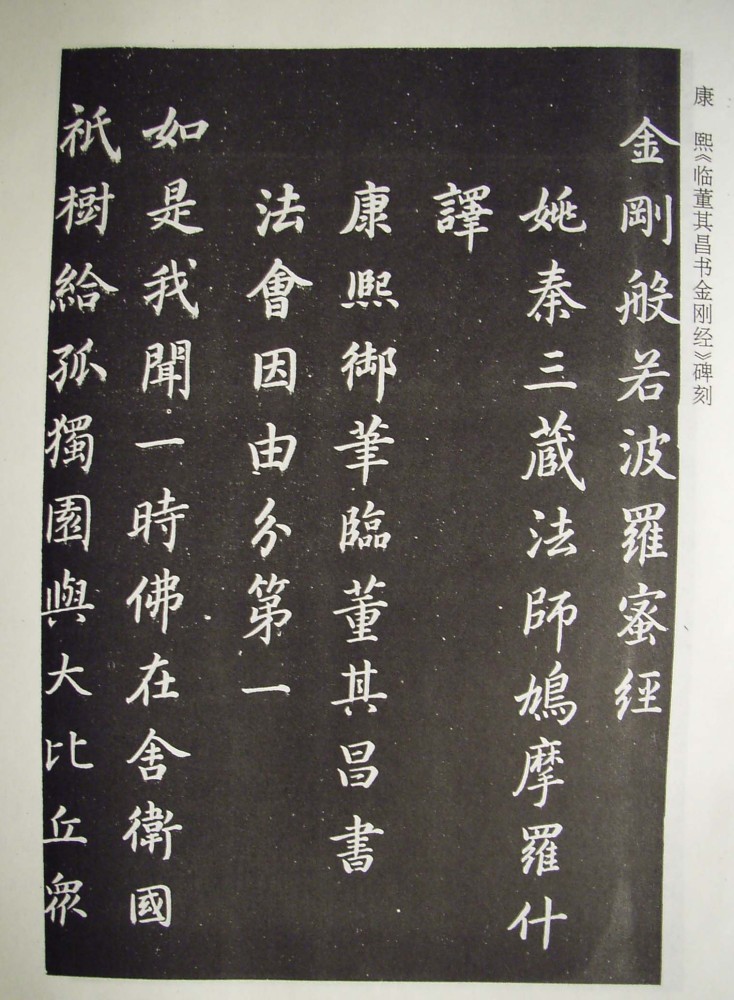 康 熙《临董其昌书金刚经》碑刻
金剛般若波羅蜜經
姚秦三蔵法師鳩摩羅什
譯
康熙御筆臨董其昌書
法會因由分第一
如是我聞一時佛在舍衛國
祇樹給孤獨園與大比丘眾